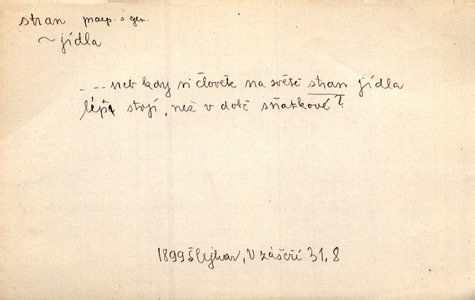 stran praep. s gen.
~ jídla
... neb kdy si člověk na světě stran jídla
lépe stojí, než v době sňatkové?
1899 Šlejhar, V zášeří 31, 8